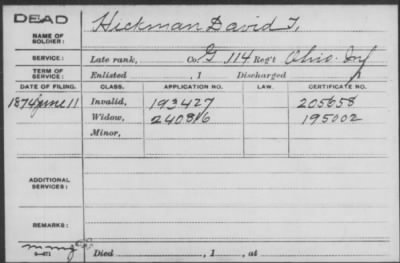 DEAD
NAME OF SOLDIER: Hickman David T.
SERVICE: Late rank, Co. G 114 Reg't Ohio Inf
TERM OF SERVICE: Enlisted , 1 Discharged , 1
DATE OF FILING. CLASS. APPLICATION NO. LAW. CERTIFICATE NO.
1874 June 11 Invalid, 193427 205658
Widow, 195002
Minor,
ADDITIONAL SERVICES:
REMARKS:
Died , 1 , at